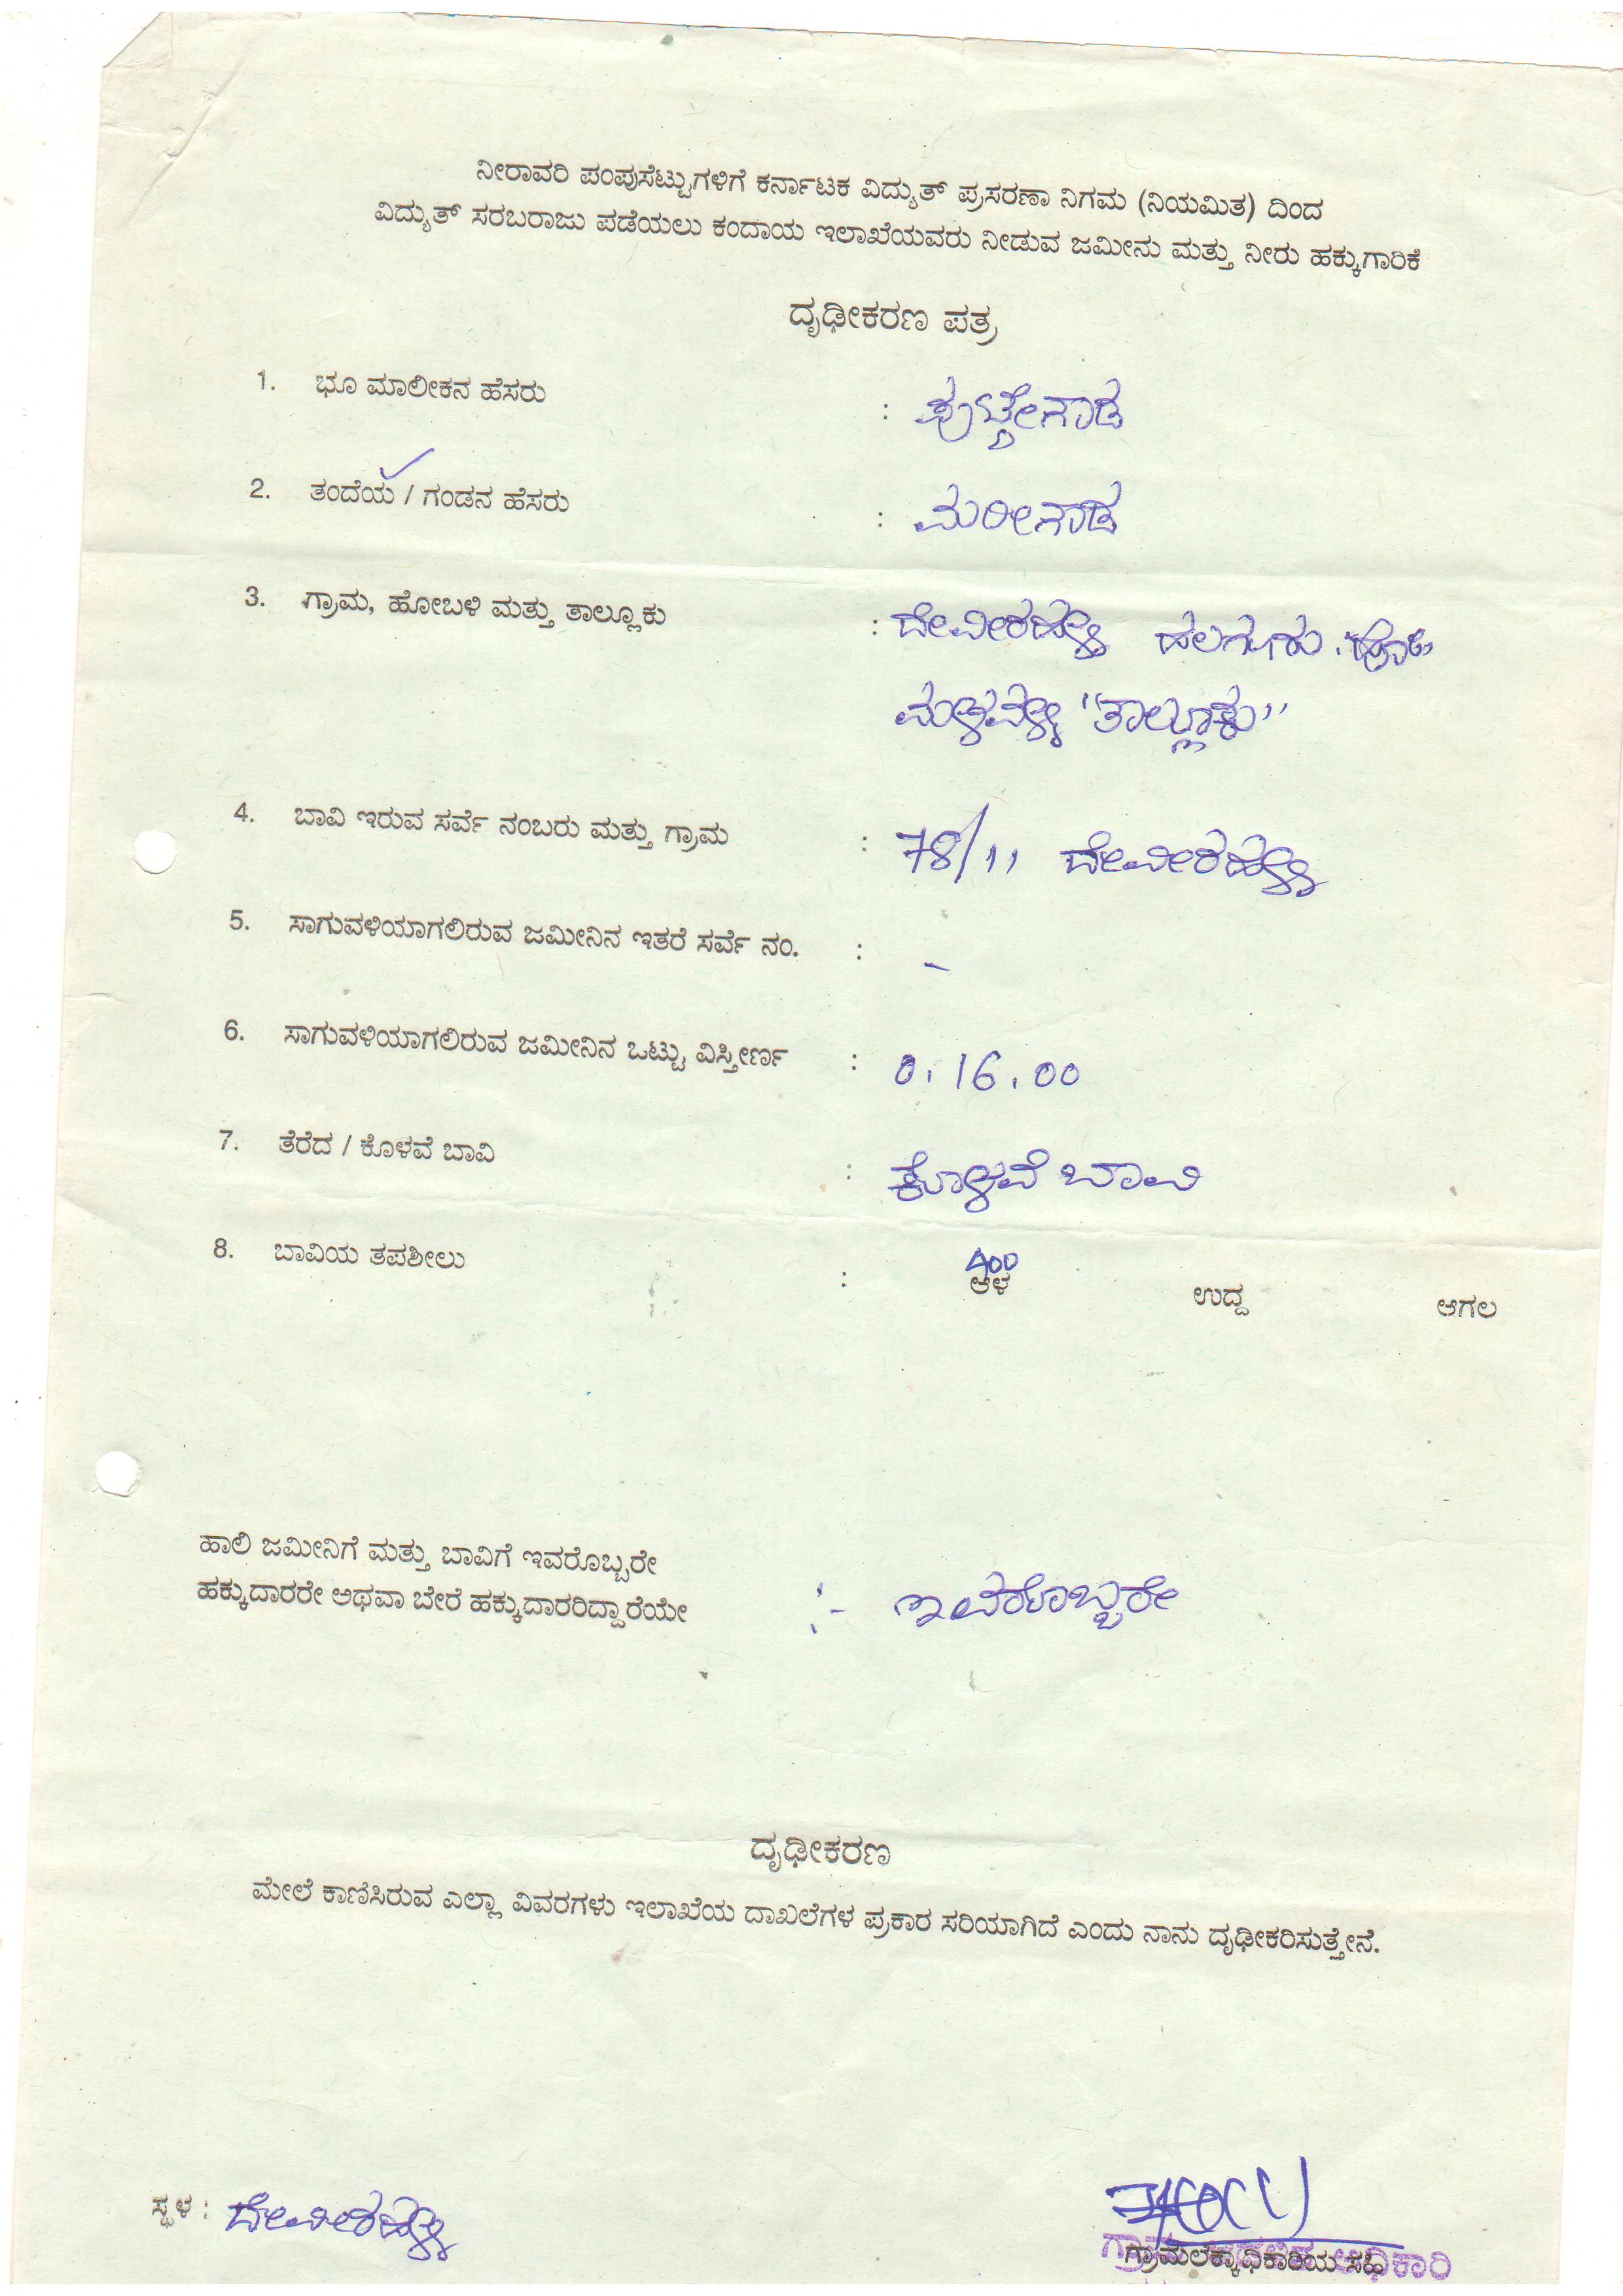 ನೀರಾವರಿ ಪಂಪುಸೆಟ್ಟುಗಳಿಗೆ ಕರ್ನಾಟಕ ವಿದ್ಯುತ್ ಪ್ರಸರಣಾ ನಿಗಮ (ನಿಯಮಿತ) ದಿಂದ
ವಿದ್ಯುತ್ ಸರಬರಾಜು ಪಡೆಯಲು ಕಂದಾಯ ಇಲಾಖೆಯವರು ನೀಡುವ ಜಮೀನು ಮತ್ತು ನೀರು ಹಕ್ಕುಗಾರಿಕೆ
ದೃಢೀಕರಣ ಪತ್ರ
1. ಭೂ ಮಾಲೀಕನ ಹೆಸರು : ಪುಟ್ಟೇಗೌಡ
2. ತಂದೆಯ / ಗಂಡನ ಹೆಸರು : ಮರೀಗೌಡ
3. ಗ್ರಾಮ, ಹೋಬಳಿ ಮತ್ತು ತಾಲ್ಲೂಕು : ದೇವೀರಹಳ್ಳಿ ಹಲಗೂರು
ಮಳವಳ್ಳಿ "ತಾಲ್ಲೂಕು"
4. ಬಾವಿ ಇರುವ ಸರ್ವೆ ನಂಬರು ಮತ್ತು ಗ್ರಾಮ : 78/11 ದೇವೀರಹಳ್ಳಿ
5. ಸಾಗುವಳಿಯಾಗಲಿರುವ ಜಮೀನಿನ ಇತರೆ ಸರ್ವೆ ನಂ. : -
6. ಸಾಗುವಳಿಯಾಗಲಿರುವ ಜಮೀನಿನ ಒಟ್ಟು ವಿಸ್ತೀರ್ಣ : 0.16.00
7. ತೆರೆದ / ಕೊಳವೆ ಬಾವಿ : ಕೊಳವೆ ಬಾವಿ
400
8. ಬಾವಿಯ ತಪಶೀಲು : ಆಳ ಉದ್ದ ಅಗಲ
ಹಾಲಿ ಜಮೀನಿಗೆ ಮತ್ತು ಬಾವಿಗೆ ಇವರೊಬ್ಬರೇ
ಹಕ್ಕುದಾರರೇ ಅಥವಾ ಬೇರೆ ಹಕ್ಕುದಾರರಿದ್ದಾರೆಯೇ :- ಇವರೊಬ್ಬರೇ
ದೃಢೀಕರಣ
ಮೇಲೆ ಕಾಣಿಸಿರುವ ಎಲ್ಲಾ ವಿವರಗಳು ಇಲಾಖೆಯ ದಾಖಲೆಗಳ ಪ್ರಕಾರ ಸರಿಯಾಗಿದೆ ಎಂದು ನಾನು ದೃಢೀಕರಿಸುತ್ತೇನೆ.
ಸ್ಥಳ : ದೇವೀರಹಳ್ಳಿ
ಗ್ರಾಮಲೆಕ್ಕಾಧಿಕಾರಿಯ ಸಹಿ